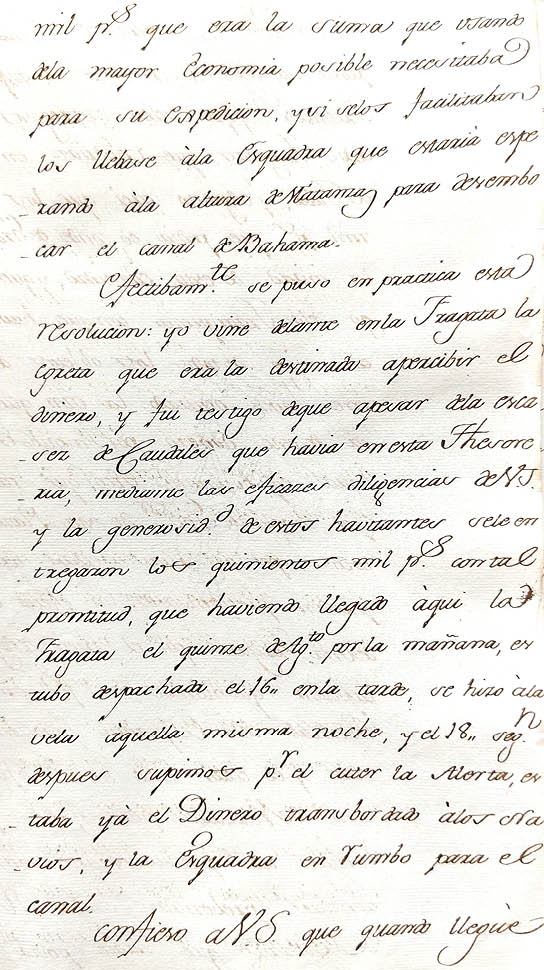 mil p.s que era la suma que usando
dela mayor Economia posible necesitaba
para su expedicion, y si selos facilitaban
los llebase àla Esquadra que estaria espe
rando àla altura de Matanzas para desembo
car el canal de Bahama.
Efectibam.te se puso en practica esta
resolucion: yo vine delante en la Fragata la
que era la destinada apercibir el
dinero, y fui testigo deque apesar dela esca
sez de Caudales que havia en esta Thesore
ria, mediante las eficazes diligencias de V.S.
y la generosid.d de estos havitantes sele en
tregaron los quinientos mil p.s con tal
prontitud, que haviendo llegado àqui la
Fragata el quinze de Ag.to por la mañana, es
tubo despachada el 16,, en la tarde, se hizo àla
vela àquella misma noche, y el 18,, seg.n
despues supimos p.r el cuter la Alerta, es
taba yà el Dinero transbordado àlos Na
vios, y la Esquadra en rumbo para el
canal.
Confieso a V.S. que quando lleguè